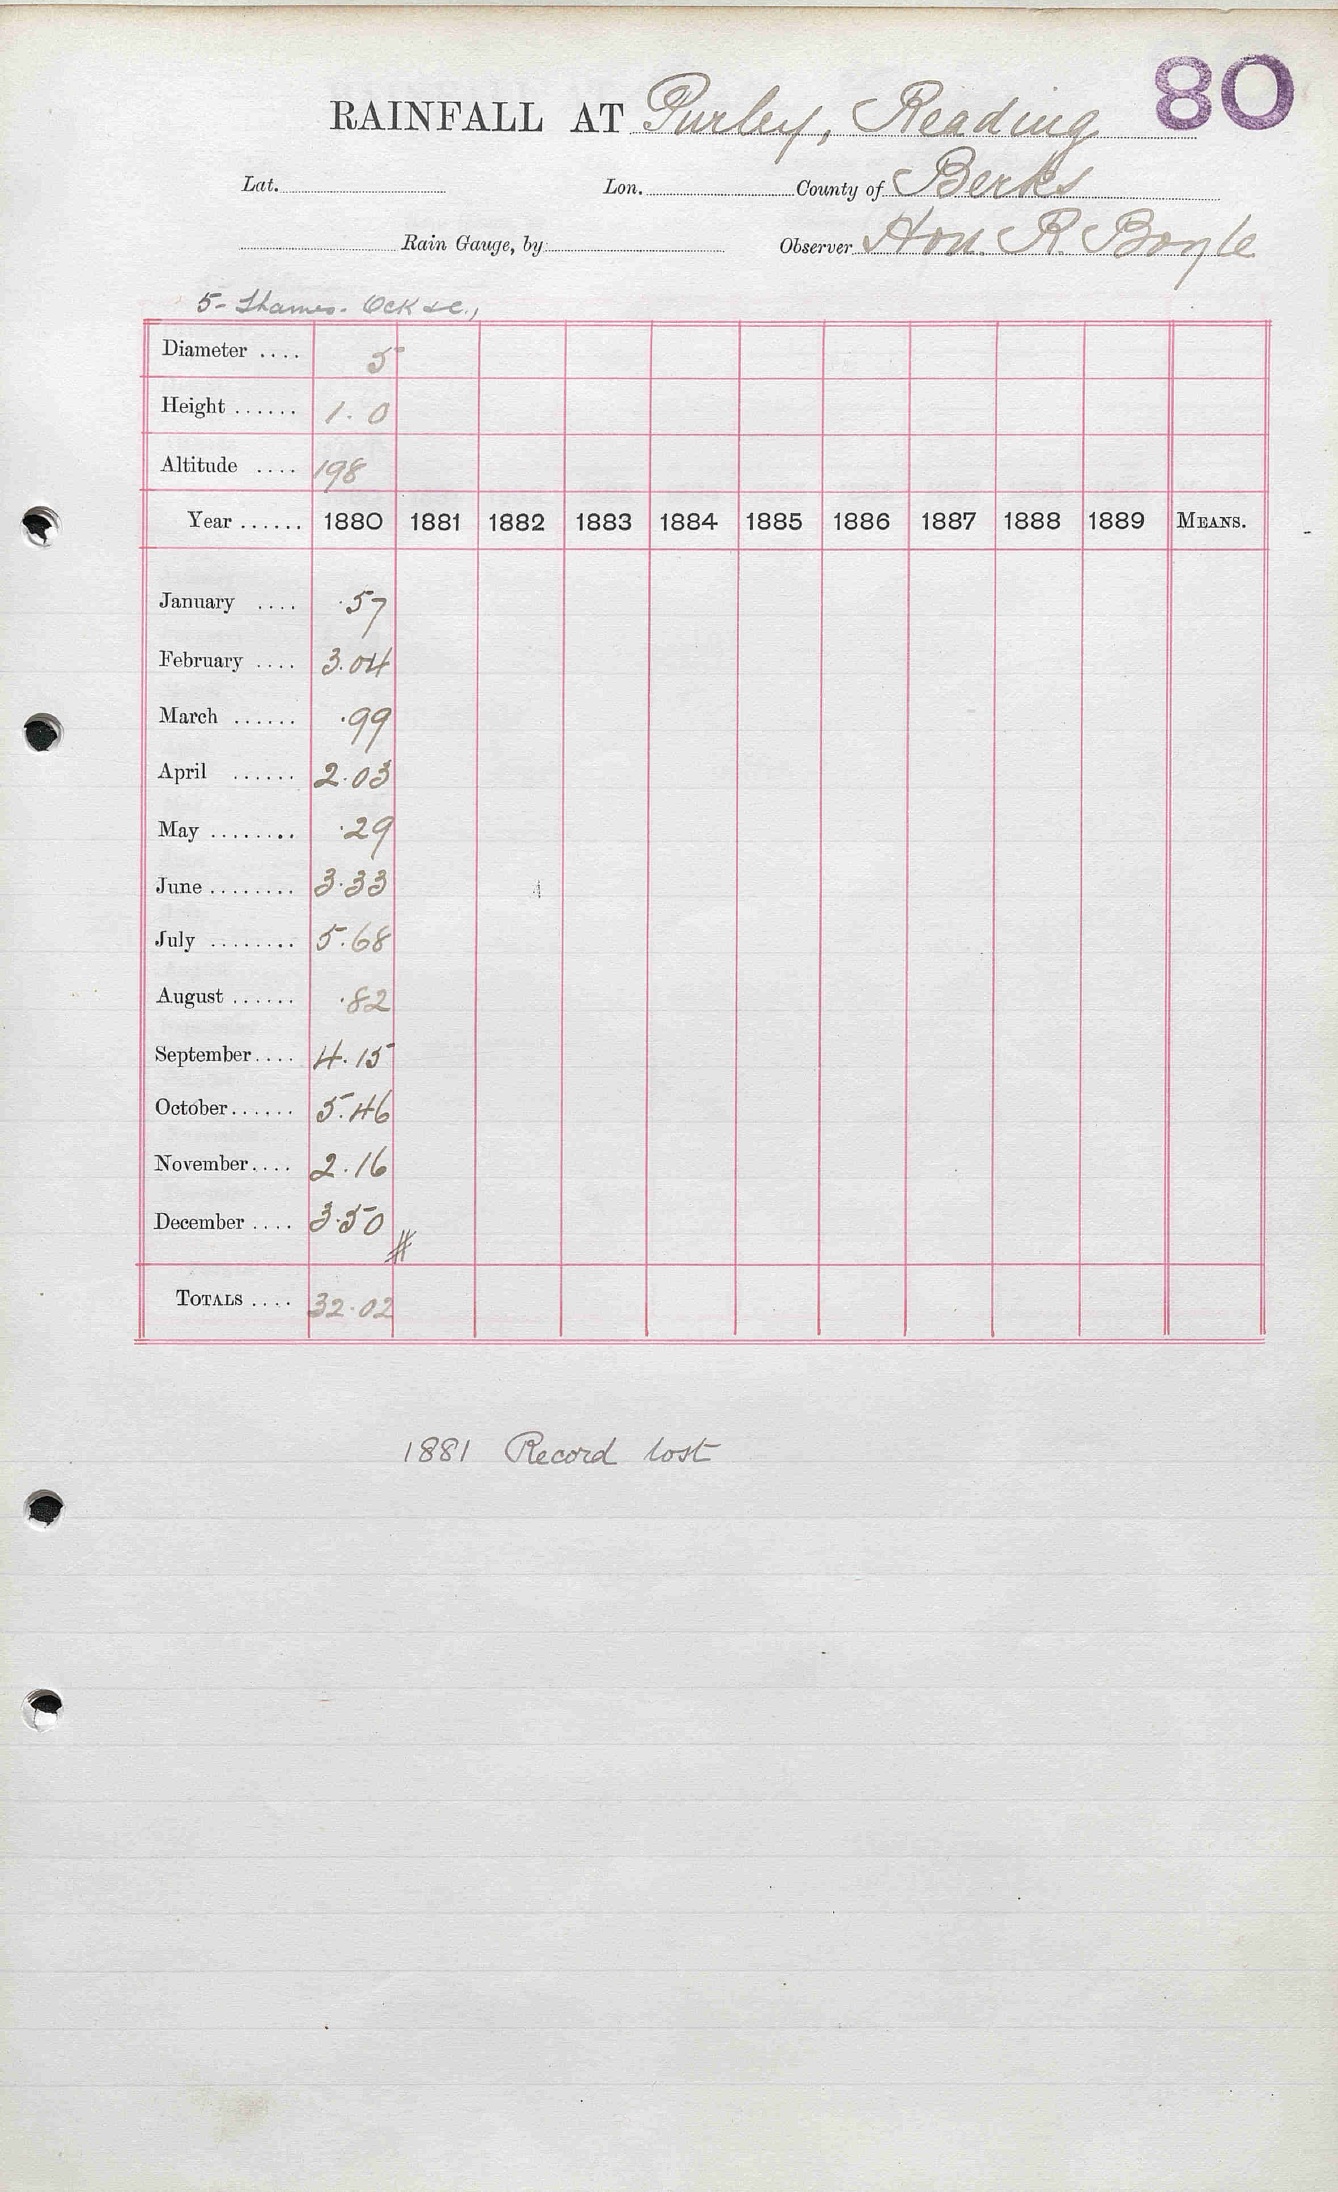 80
RAINFALL AT Purley, Reading
Lat. Lon. County of Berks
Rain Gauge, by Observer Hon. R. Boyle
5- Thames. Ock &c.,
Diameter .... 5
Height ...... 1.0
Altitude .... 198
Year ...... 1880 1881 1882 1883 1884 1885 1886 1887 1888 1889 MEANS.
January .... .57
February .... 3.04
March ...... .99
April ...... 2.03
May ........ .29
June ........ 3.33
July ........ 5.68
August ...... .82
September .... 4.15
October ...... 5.46
November .... 2.16
December .... 3.50
#
TOTALS .... 32.02
1881 Record lost